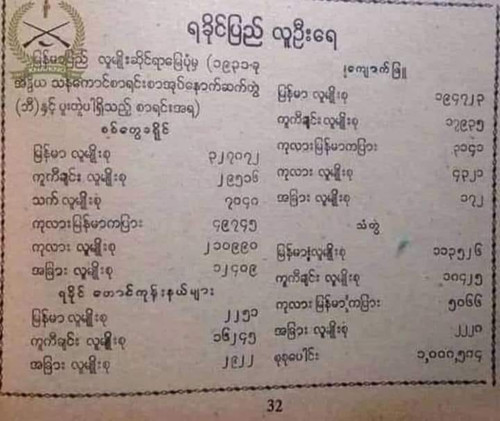 ရခိုင်ပြည် လူဦးရေ
မြန်မာပြည် လူမျိုးဆိုင်ရာမြေပုံမှ (၁၉၃၁-ခု
အိန္ဒိယ သန်းကောင်စာရင်းစာအုပ်နောက်ဆက်တွဲ
(ဘီ)နှင့် ပူးတွဲပါရှိသည့် စာရင်းအရ)
စစ်တွေခရိုင်
မြန်မာ လူမျိုးစု ၃၂၇၀၇၂
ကူကီချင်း လူမျိုးစု ၂၉၅၁၆
သက် လူမျိုးစု ၇၀၄၈
ကုလားမြန်မာကပြား ၄၉၇၄၅
ကုလား လူမျိုးစု ၂၁၀၉၉၀
အခြား လူမျိုးစု ၁၂၄၀၉
ရခိုင် တောင်ကုန်းနယ်များ
မြန်မာ လူမျိုးစု ၂၂၅၁
ကူကီချင်း လူမျိုးစု ၁၆၂၄၅
အခြား လူမျိုးစု ၂၉၂၂
ကျောက်ဖြူ
မြန်မာ လူမျိုးစု ၁၉၄၇၂၃
ကူကီချင်းလူမျိုးစု ၁၇၉၃၅
ကုလားမြန်မာကပြား ၃၁၄၁
ကုလား လူမျိုးစု ၄၃၂၁
အခြား လူမျိုးစု ၁၇၂
သံတွဲ
မြန်မာ့လူမျိုးစု ၁၁၃၅၂၆
ကူကီချင်း လူမျိုးစု ၁၀၄၂၅
ကုလားမြန်မာကပြား ၅၀၆၆
အခြား လူမျိုးစု ၂၂၂၀
စုစုပေါင်း ၁,၀၀၈,၅၃၄
32